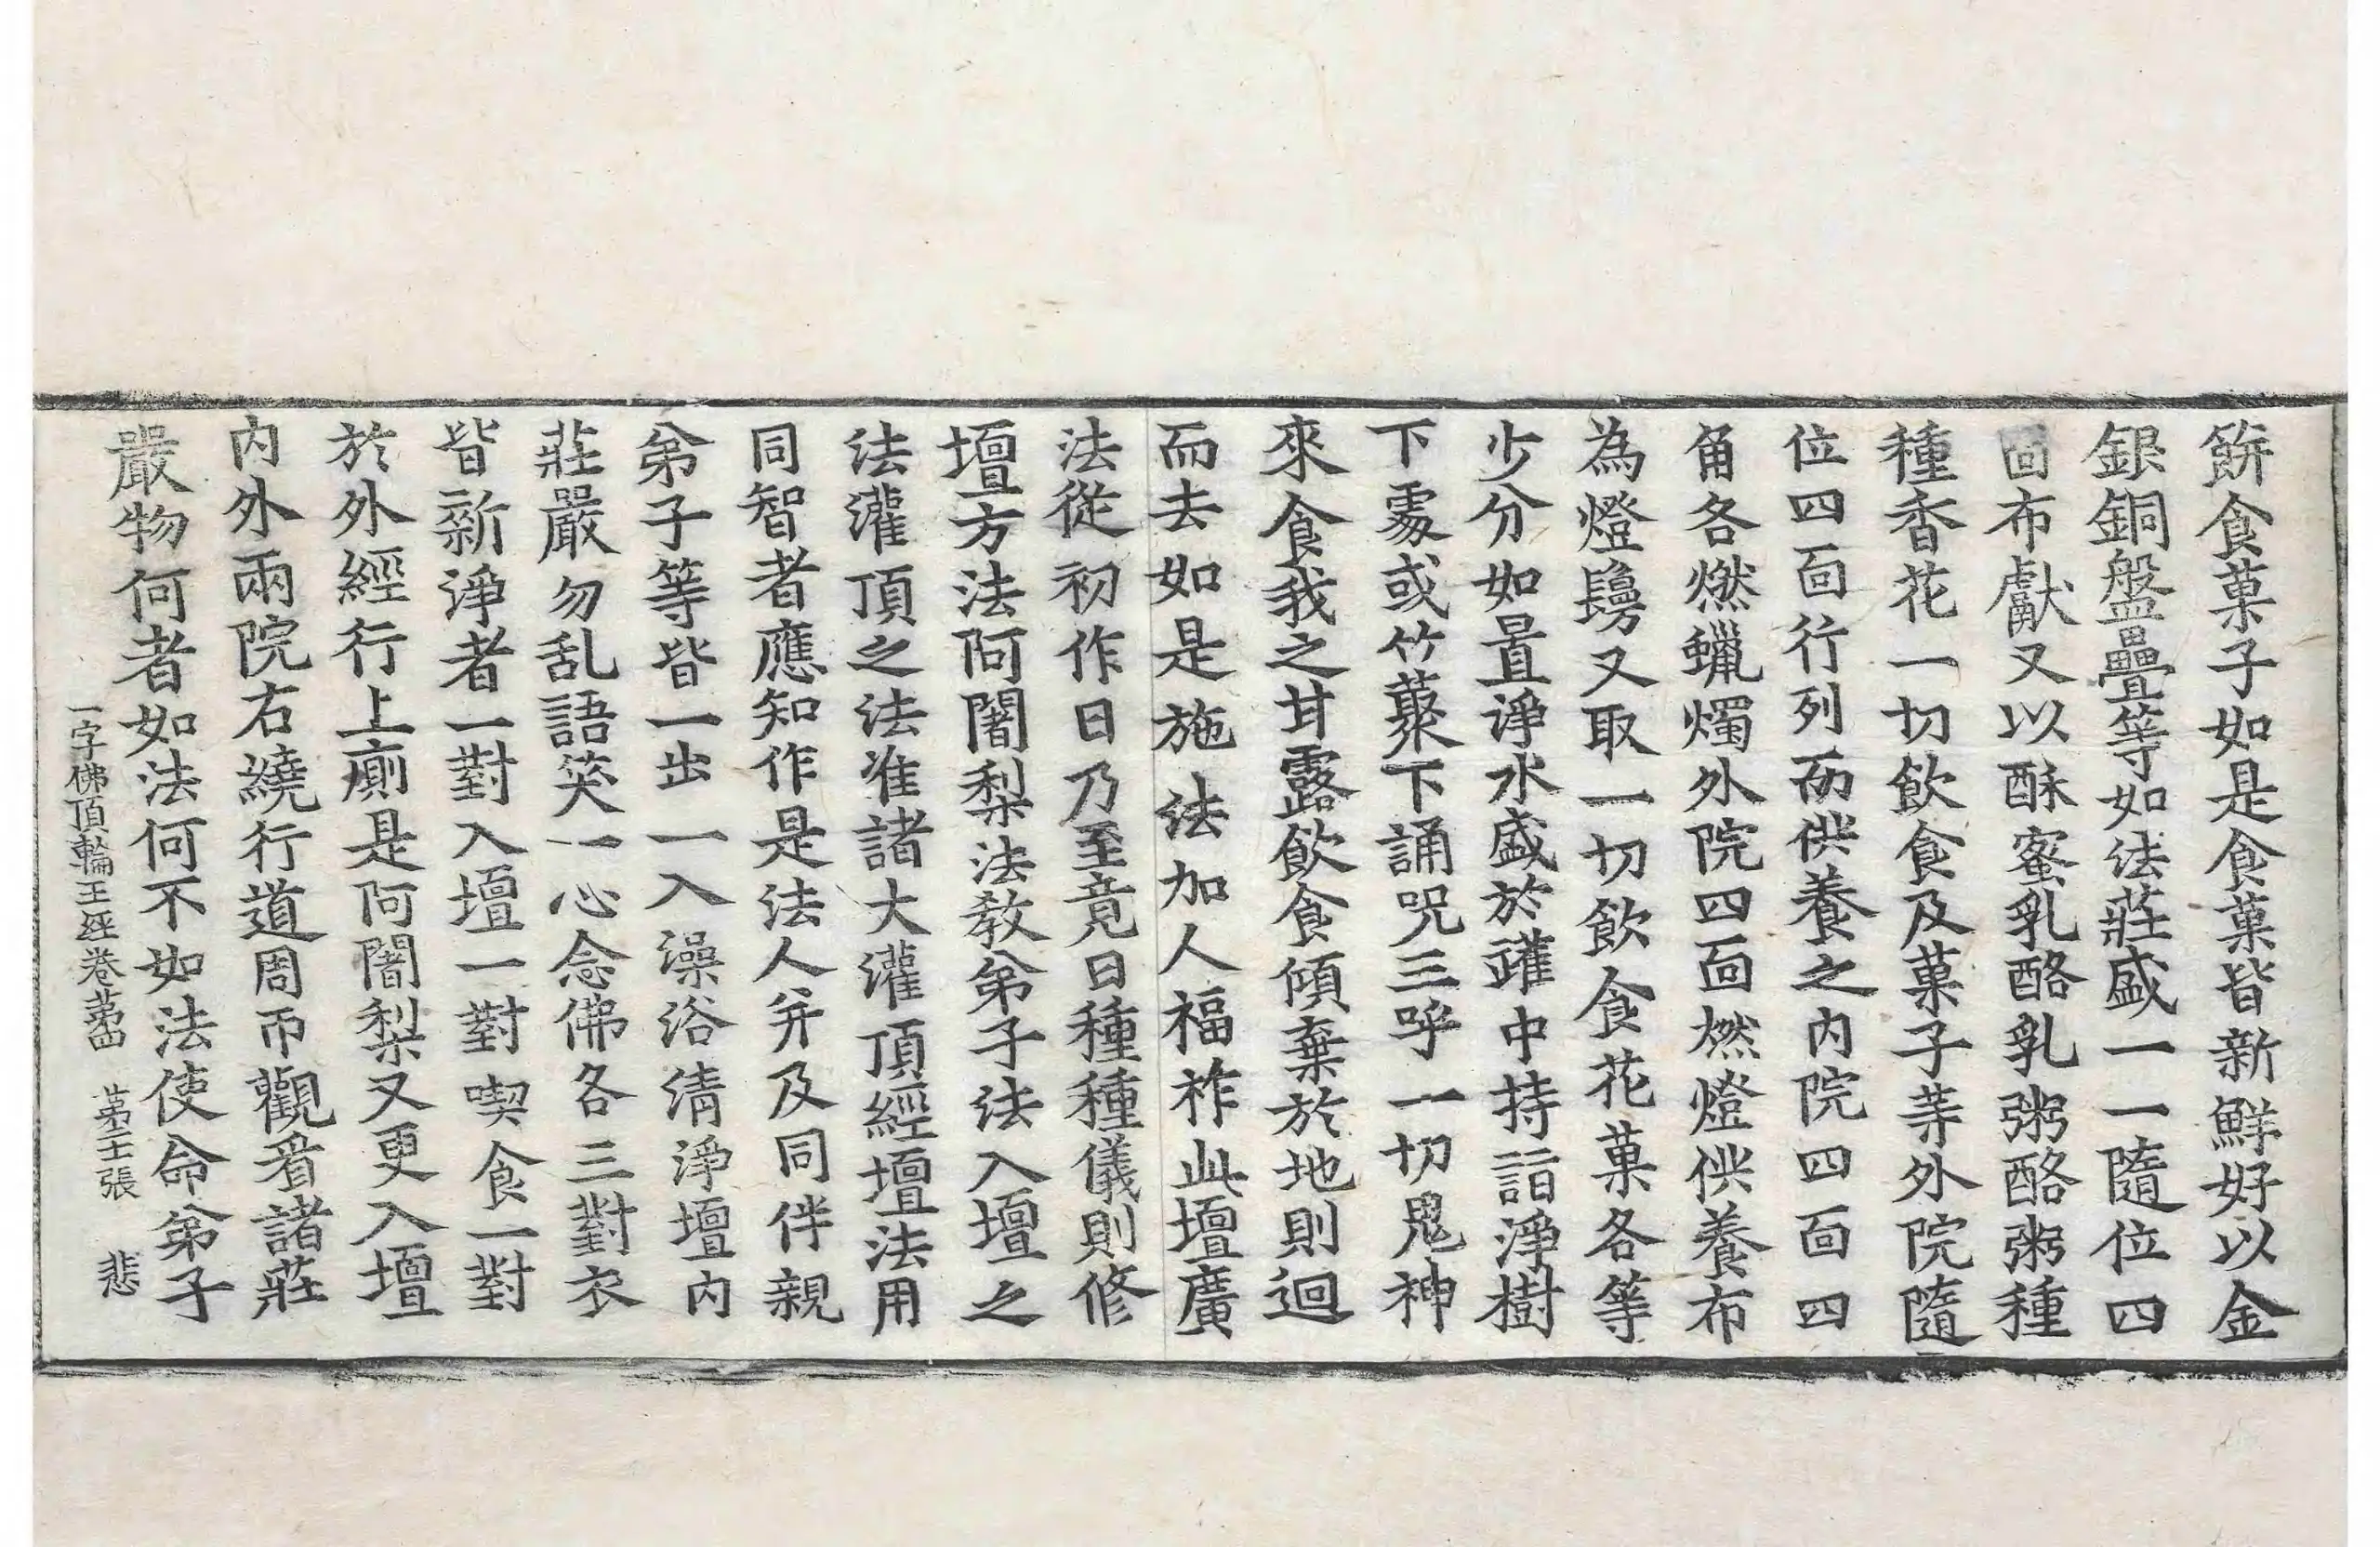 餅食菓子如是食菓皆新鮮好以金
銀銅盤疊等如法莊盛一一隨位四
面布獻又以酥蜜乳酪乳粥酪粥種
種香花一切飲食及菓子等外院隨
位四面行列而供養之内院四面四
角各燃蠟燭外院四面燃燈供養布
為燈鬘又取一切飲食花菓各等
少分如置淨水盛於䍉中持詣淨樹
下處或竹藂下誦咒三呼一切鬼神
來食我之甘露飲食傾棄於地則迴
而去如是施法加人福祚此壇廣
法從初作日乃至竟日種種儀則修
壇方法阿闍梨法教弟子法入壇之
法灌頂之法准諸大灌頂經壇法用
同智者應知作是法人并及同伴親
弟子等皆一出一入澡浴清淨壇内
莊嚴勿乱語笑一心念佛各三對衣
皆新淨者一對入壇一對喫食一對
於外經行上廁是阿闍梨又更入壇
内外兩院右繞行道周帀觀看諸莊
嚴物何者如法何不如法使命弟子
一字佛頂輪王經卷苐四 苐十二張 悲